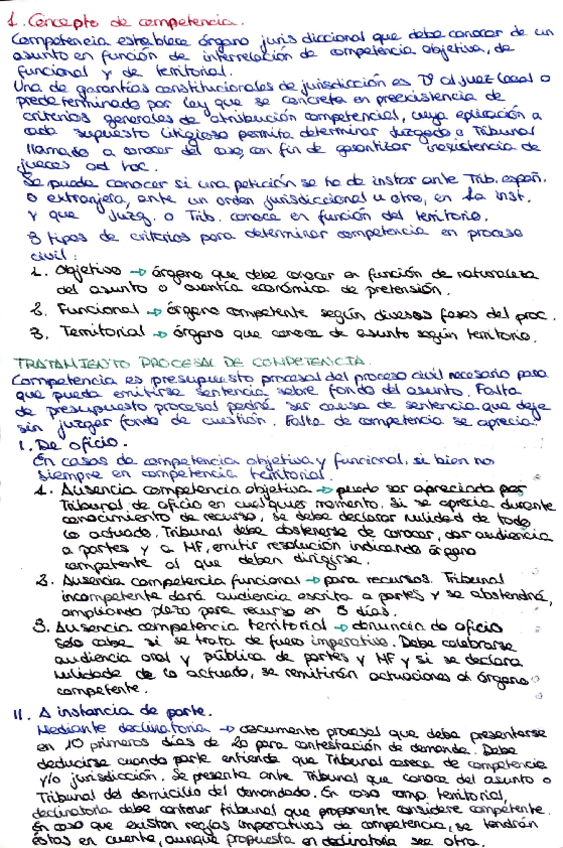 1. Concepto de competencia.
Competencia establece órgano jurisdiccional que debe conocer de un
asunto en función de interrelación de competencia objetiva, de
funcional y de territorial.
Una de garantías constitucionales de jurisdicción es Dº al juez legal o
predeterminado por ley que se concreta en preexistencia de
criterios generales de atribución competencial, cuya aplicación a
cada supuesto litigioso permita determinar Juzgado o Tribunal
llamado a conocer del caso, con fin de garantizar inexistencia de
jueces ad hoc.
Se puede conocer si una petición se ha de instar ante Trib. españ.
o extranjero, ante un orden jurisdiccional u otro, en 1a inst.
y que Juzg. o Trib. conoce en función del territorio.
3 tipos de criterios para determinar competencia en proceso
civil:
1. Objetivo → órgano que debe conocer en función de naturaleza
del asunto o cuantía económica de pretensión.
2. Funcional → órgano competente según diversas fases del proc.
3. Territorial → órgano que conoce de asunto según territorio.
TRATAMIENTO PROCESAL DE COMPETENCIA.
Competencia es presupuesto procesal del proceso civil necesario para
que pueda emitirse sentencia sobre fondo del asunto. Falta
de presupuesto procesal podrá ser causa de sentencia que deje
sin juzgar fondo de cuestión. Falta de competencia se aprecia:
I. De oficio.
En casos de competencia objetiva y funcional, si bien no
siempre en competencia territorial.
1. Ausencia competencia objetiva → puede ser apreciada por
Tribunal de oficio en cualquier momento. Si se aprecia durante
conocimiento de recurso, se debe declarar nulidad de todo
lo actuado. Tribunal debe abstenerse de conocer, dar audiencia
a partes y a MF, emitir resolución indicando órgano
competente al que deben dirigirse.
2. Ausencia competencia funcional → para recursos. Tribunal
incompetente dará audiencia escrita a partes y se abstendrá,
ampliando plazo para recurso en 5 días.
3. Ausencia competencia territorial → denuncia de oficio
solo cabe si se trata de fuero imperativo. Debe celebrarse
audiencia oral y pública de partes y MF y si se declara
nulidade de lo actuado, se remitirán actuaciones al órgano
competente.
II. A instancia de parte.
Mediante declinatoria → documento procesal que debe presentarse
en 10 primeros días de 20 para contestación de demanda. Debe
deducirse cuando parte entienda que Tribunal carece de competencia
y/o jurisdicción. Se presenta ante Tribunal que conoce del asunto o
Tribunal del domicilio del demandado. En caso comp. territorial,
declinatoria debe contener tribunal que proponente considere competente.
En caso que existan reglas imperativas de competencia, se tendrán
éstas en cuenta, aunque propuesta en declinatoria sea otra.